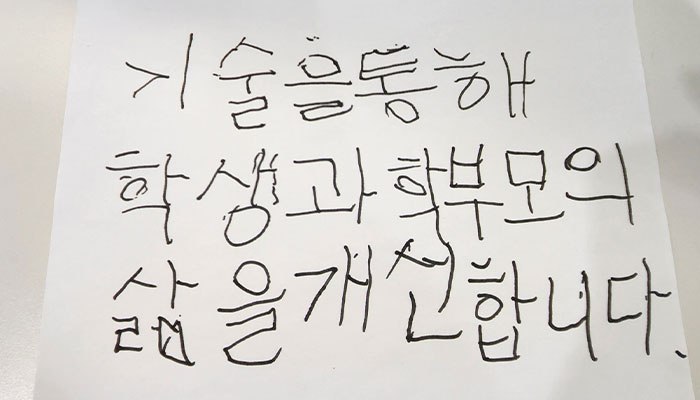 기술을통해
학생과 학부모의
삶을 개선합니다.